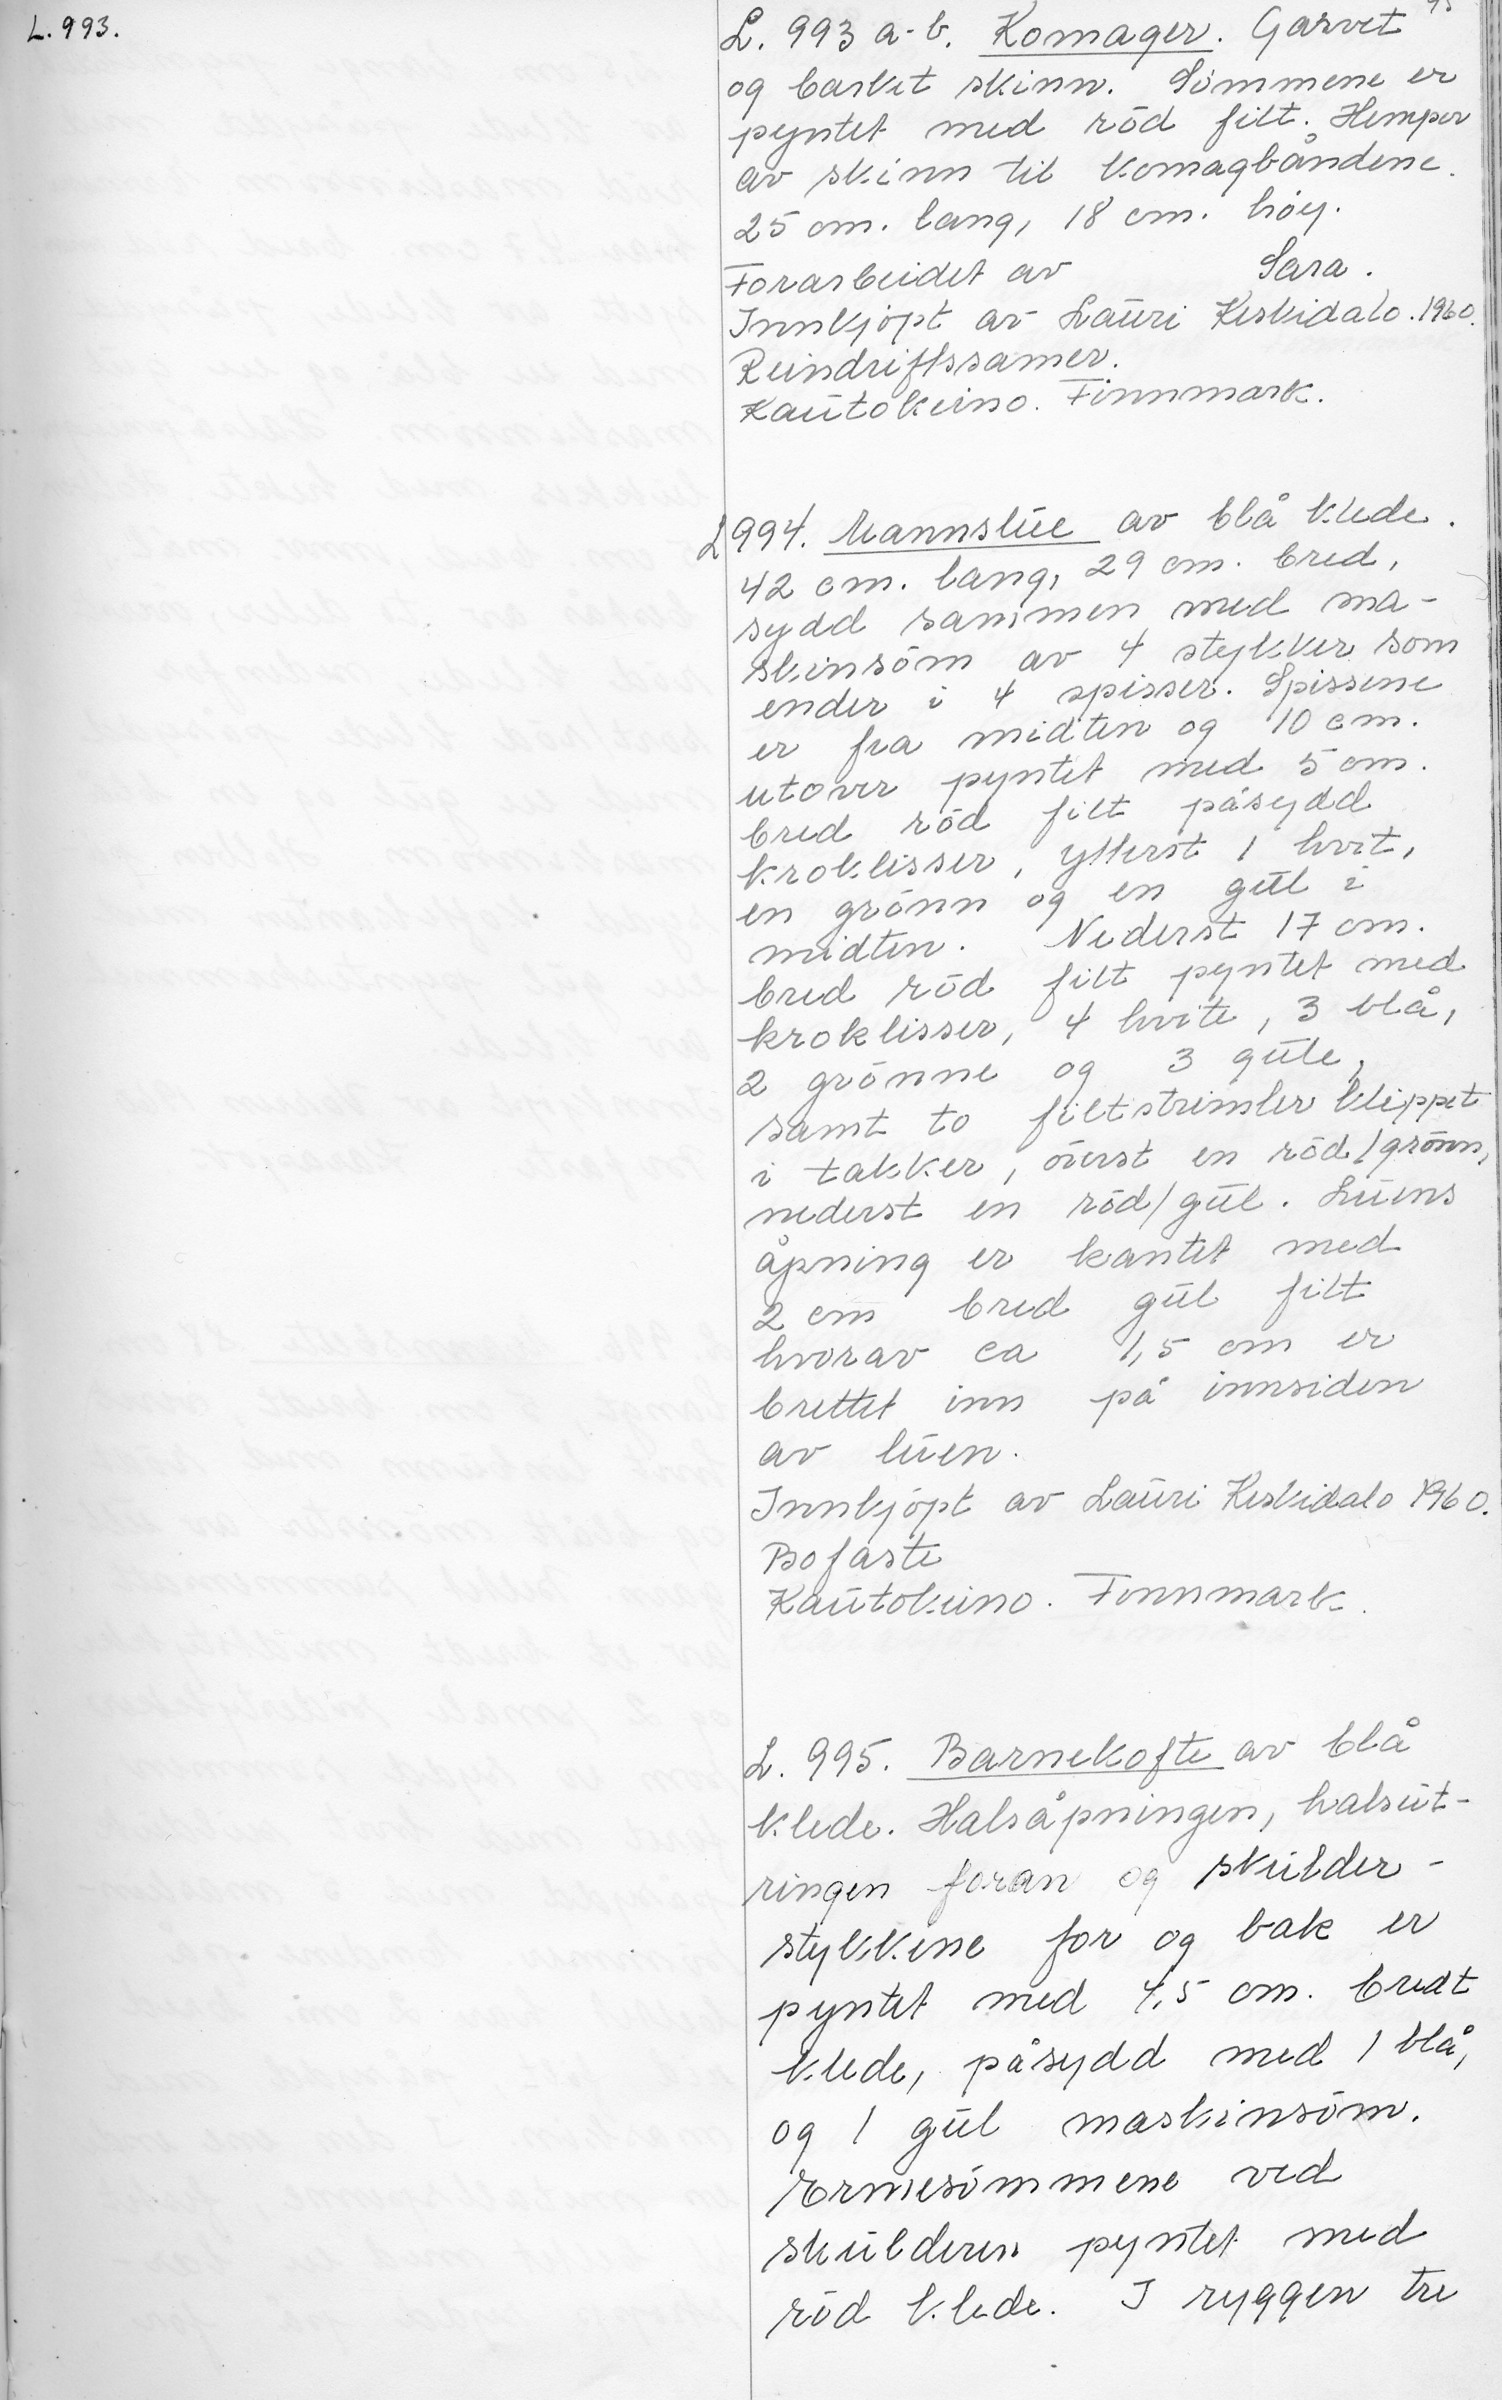 L. 993.
L. 993 a-b. Komager. Garvet
og barket skinn. Sömmene er
pyntet med röd filt. Hemper
av skinn til komagbåndene.
25 cm. lang, 18 cm. höy.
Forarbeidet av Sara.
Innkjöpt av Lauri Keskidalo. 1960.
Reindriftssamer.
Kautokeino. Finnmark.
L 994. Mannslue av blå klede.
42 cm. lang, 29 cm. bred,
sydd sammen med ma-
skinsöm av 4 stykker som
ender i 4 spisser. Spissene
er fra midten og 10 cm.
utover pyntet med 5 cm.
bred röd filt påsydd
kroklisser, ytterst 1 hvit,
en grönn og en gul i
midten. Nederst 17 cm.
bred röd filt pyntet med
kroklisser, 4 hvite, 3 blå,
2 grönne og 3 gule,
samt to filtstrimler klippet
i takker, överst en röd/grönn,
nederst en röd/gul. Luens
åpning er kantet med
2 cm bred gul filt
hvorav ca 1,5 cm er
brettet inn på innsiden
av luen.
Innkjöpt av Lauri Keskidalo 1960.
Bofaste
Kautokeino. Finnmark.
L. 995. Barnekofte av blå
klede. Halsåpningen, halsut-
ringen foran og skulder-
stykkene for og bak er
pyntet med 4,5 cm. bredt
klede, påsydd med 1 blå,
og 1 gul maskinsöm.
Ermesömmene ved
skulderen pyntet med
röd klede. I ryggen tre